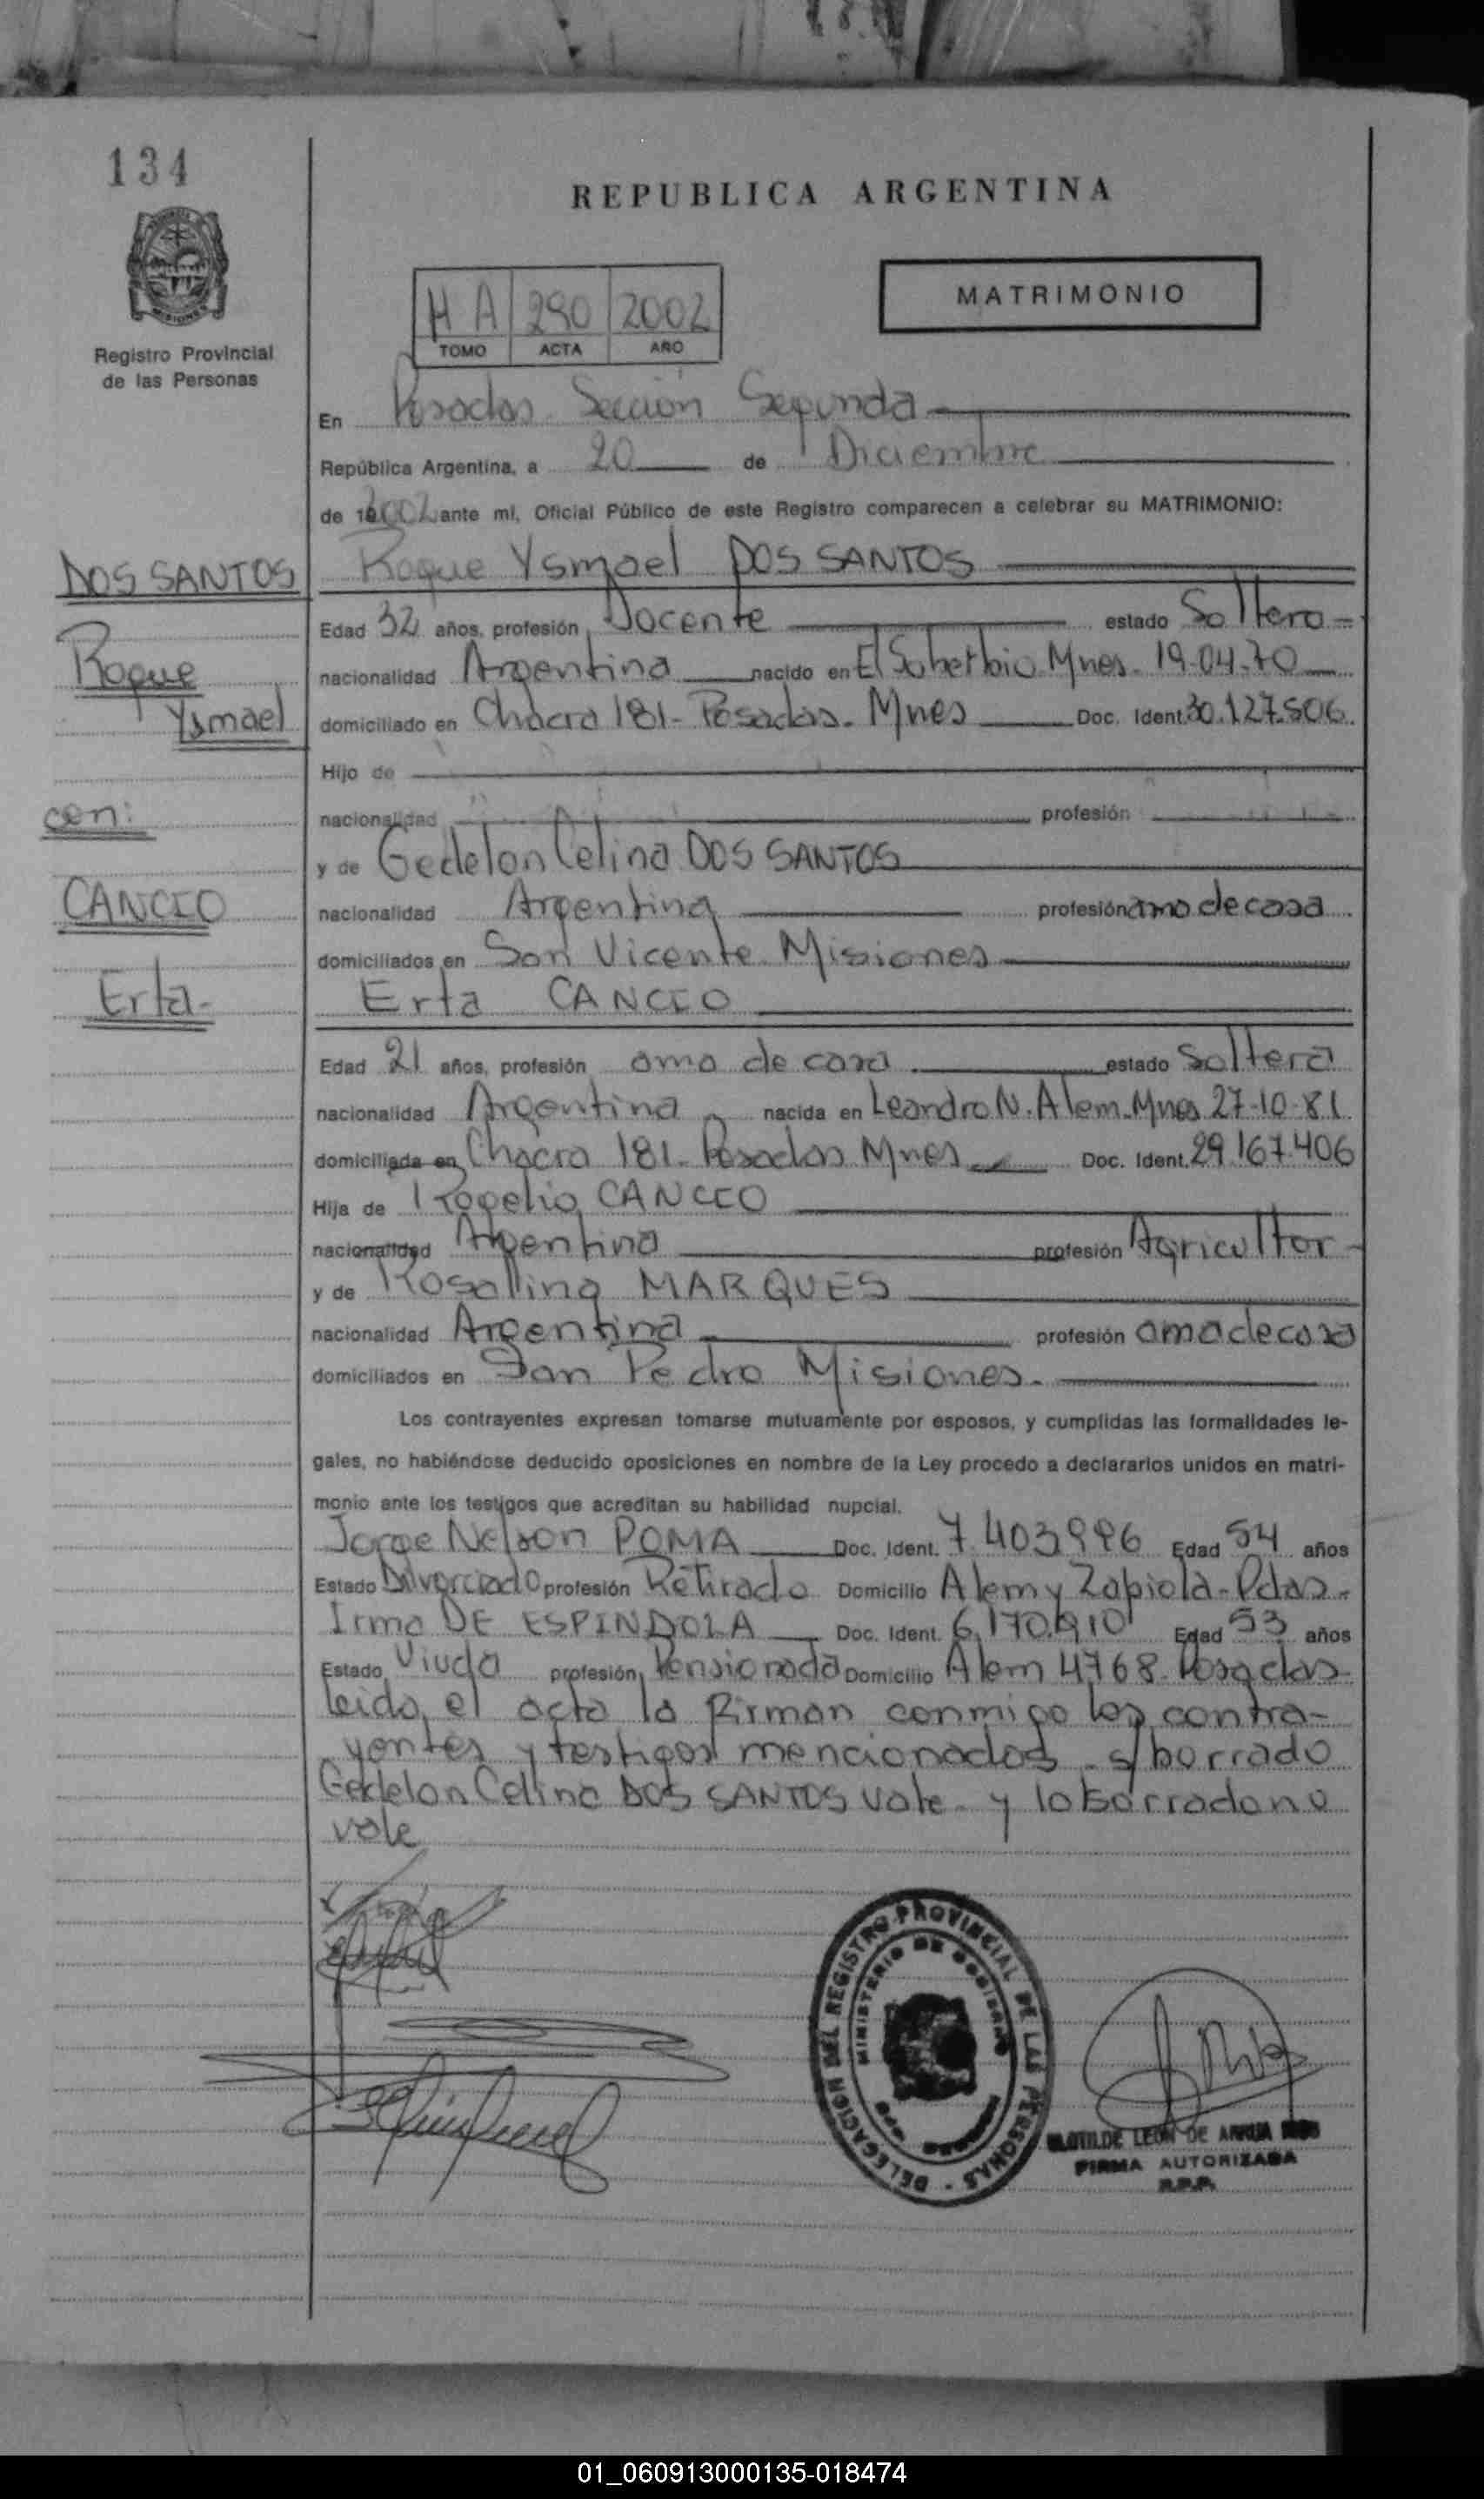 134
REPUBLICA ARGENTINA
Registro Provincial
de las Personas
H A 290 2002
TOMO ACTA AÑO
MATRIMONIO
En Posadas Sección Segunda
República Argentina, a 20 de Diciembre
de 2002 ante mí, Oficial Público de este Registro comparecen a celebrar su MATRIMONIO:
DOS SANTOS
Roque
Ysmael
con:
CANCIO
Erta-
Roque Ysmael DOS SANTOS
Edad 32 años, profesión Docente estado Soltero-
nacionalidad Argentina nacido en El Soberbio Mnes. 19-04-70
domiciliado en Chacra 181- Posadas. Mnes Doc. Ident. 30.127.506.
Hijo de
nacionalidad profesión
y de Gedelon Celina DOS SANTOS
nacionalidad Argentina profesión ama de casa
domiciliados en San Vicente Misiones
Erta CANCIO
Edad 21 años, profesión ama de casa estado Soltera
nacionalidad Argentina nacida en Leandro N. Alem-Mnes 27-10-81
domiciliada en Chacra 181- Posadas Mnes Doc. Ident. 29.167.406
Hija de Rogelio CANCIO
nacionalidad Argentina profesión Agricultor-
y de Rosallina MARQUES
nacionalidad Argentina profesión ama de casa
domiciliados en San Pedro Misiones.
Los contrayentes expresan tomarse mutuamente por esposos, y cumplidas las formalidades le-
gales, no habiéndose deducido oposiciones en nombre de la Ley procedo a declararlos unidos en matri-
monio ante los testigos que acreditan su habilidad nupcial.
Jorge Nelson POMA Doc. Ident. 7.403996 Edad 54 años
Estado Divorciado profesión Retirado Domicilio Alem y Zapiola-Pdas-
Irma DE ESPINDOLA Doc. Ident. 6.170.910 Edad 53 años
Estado Viuda profesión Pensionada Domicilio Alem 4768-Posadas-
leida el acta la firman conmigo los contra-
yentes y testigos mencionados. s/borrado
Gedelon Celina DOS SANTOS vale y lo borrado no
vale
DELEGACION DEL REGISTRO PROVINCIAL DE LAS PERSONAS
MINISTERIO DE GOBIERNO
CLOTILDE LEON DE
FIRMA AUTORIZADA
R.P.P.
01_060913000135-018474